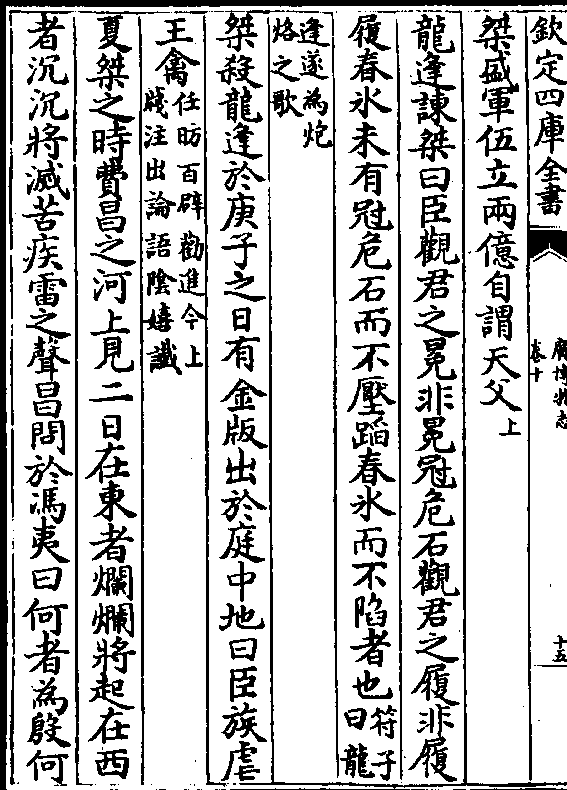 欽定四庫全書
廣博物志
卷十
十五
桀盛軍伍立兩億自謂天父上
龍逢諫桀曰臣觀君之冕非冕冠危石觀君之履非履
履春氷未有冠危石而不壓蹈春氷而不陷者也符子曰龍
逢遂為炮烙之歌
桀殺龍逢於庚子之日有金版出於庭中地曰臣族虐
王禽任昉百辟勸進今上牋注出論語隂嬉讖
夏桀之時費昌之河上見二日在東者爛爛將起在西
者沉沉將滅苦疾雷之聲昌問於馮夷曰何者為殷何